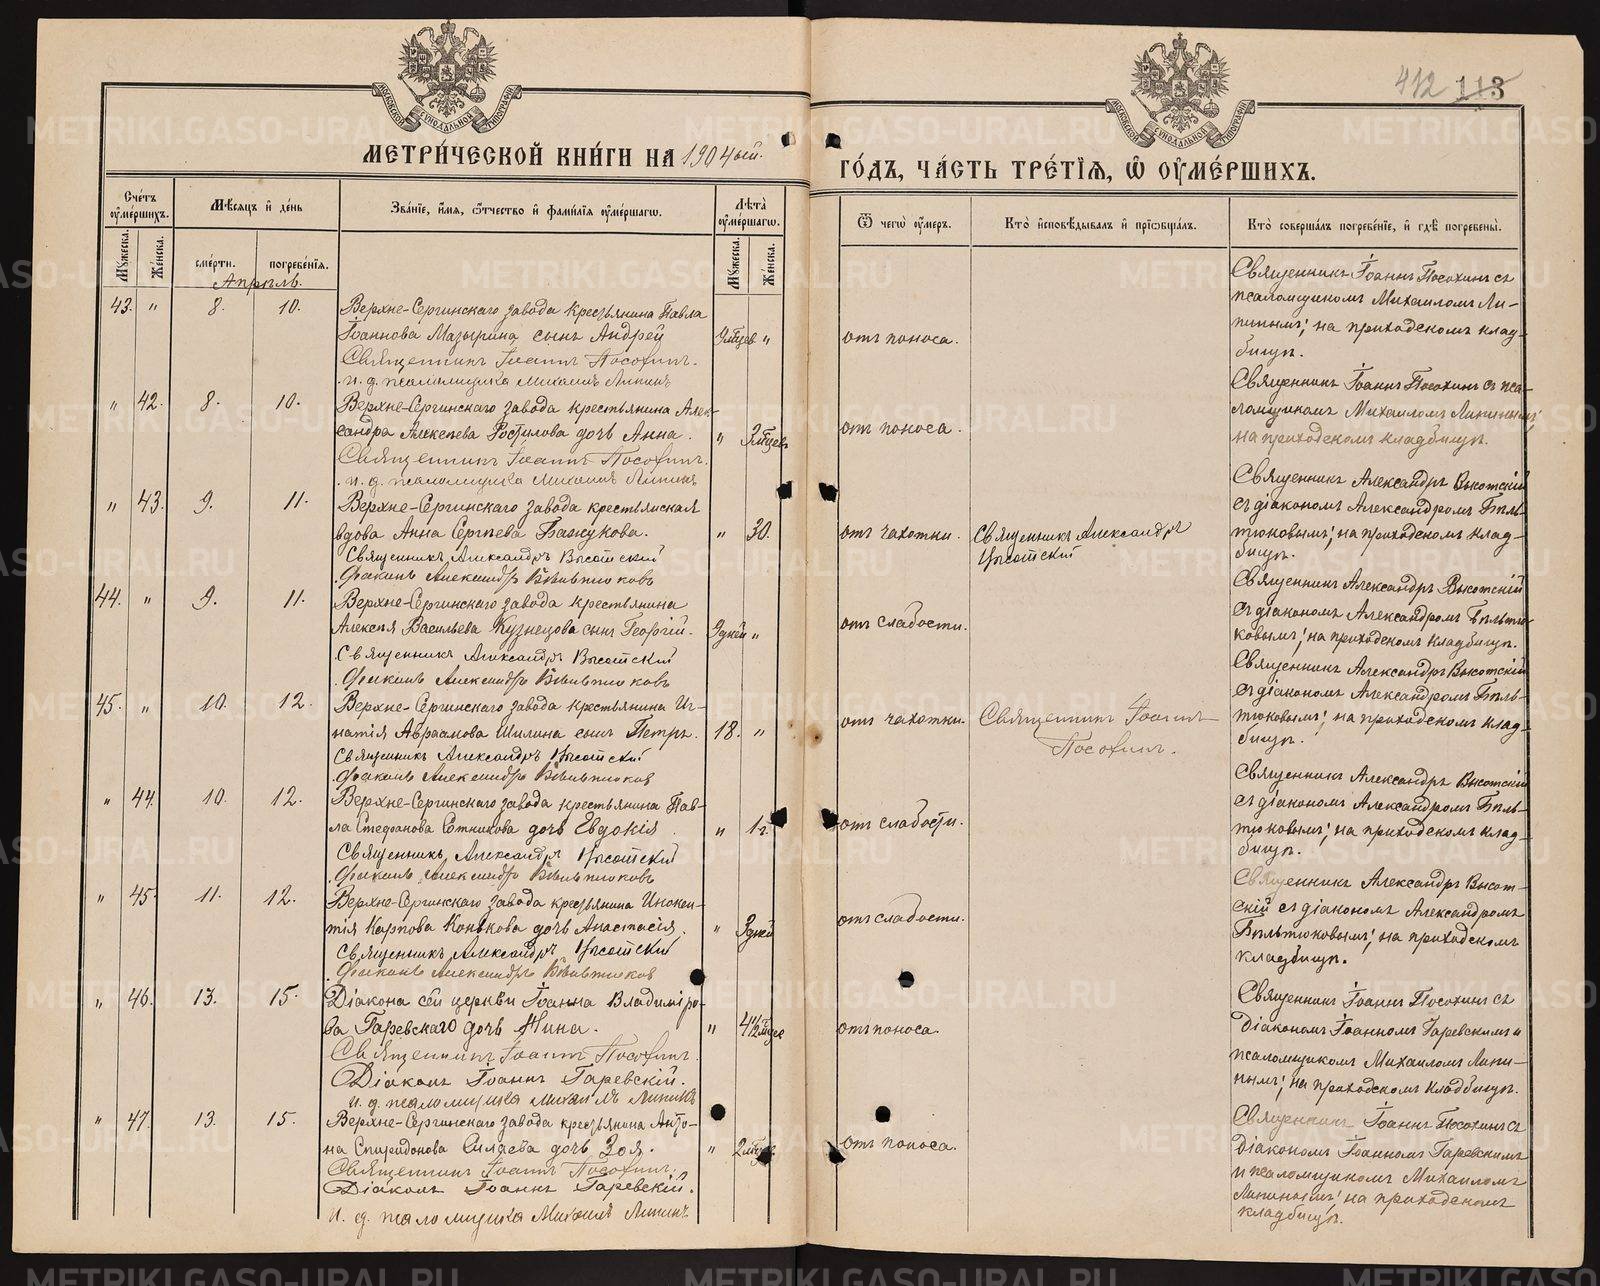 412 113
МОСКОВСКОЙ СѴНОДАЛЬНОЙ ТИПОГРАФІИ
МОСКОВСКОЙ СѴНОДАЛЬНОЙ ТИПОГРАФІИ
МЕТРИ́ЧЕСКОЙ КНИ́ГИ НА 1904ый.
ГО́ДЪ, ЧА́СТЬ ТРЕ́ТЇѦ, Ѡ҆ ОУ҆МЕ́РШИХЪ.
Сче́тъ оу҆ме́ршихъ.
Му́жеска.
Же́нска.
Мѣ́сѧцъ и҆ де́нь
сме́рти.
погребе́нїѧ.
Зва́нїе, и҆́мѧ, ѻ҆́тчество и҆ фами́лїѧ оу҆ме́ршагѡ.
Лѣ́та оу҆ме́ршагѡ.
Му́жеска.
Же́нска.
Ѿ чегѡ̀ оу҆́меръ.
Кто̀ и҆сповѣ́дывалъ и҆ прїѡбща́лъ.
Кто̀ соверша́лъ погребе́нїе, и҆ гдѣ̀ погребены̀.
Апрѣль.
43. " 8. 10.
Верхне-Сергинскаго завода крестьянина Павла
Іоаннова Мазырина сынъ Андрей
Священникъ Іоаннъ Посохинъ.
и. д. псаломщика Михаилъ Липинъ
9 мѣсцев "
отъ поноса.
Священникъ Іоаннъ Посохинъ съ
псаломщикомъ Михаиломъ Ли-
пинымъ; на приходскомъ клад-
бищѣ.
" 42. 8. 10.
Верхне-Сергинскаго завода крестьянина Алек-
сандра Алексѣева Ростилова дочь Анна.
Священникъ Іоаннъ Посохинъ.
и. д. псаломщика Михаилъ Липинъ
" 3 мѣсцев
отъ поноса.
Священникъ Іоаннъ Посохинъ съ пса-
ломщикомъ Михаиломъ Липинымъ;
на приходскомъ кладбищѣ.
" 43. 9. 11.
Верхне-Сергинскаго завода крестьянская
вдова Анна Сергѣева Бажукова.
Священникъ Александръ Высотский
Діаконъ Александръ Бѣльтюковъ
" 30.
отъ чахотки.
Священникъ Александръ
Высотский
Священникъ Александръ Высотскій
съ діакономъ Александромъ Бѣль-
тюковымъ; на приходскомъ клад-
бищѣ.
44. " 9. 11.
Верхне-Сергинскаго завода крестьянина
Алексѣя Васильева Кузнецова сынъ Георгій.
Священникъ Александръ Высотский
Діаконъ Александръ Бѣльтюковъ
9 дней "
отъ слабости.
Священникъ Александръ Высотскій
съ діакономъ Александромъ Бѣльтю-
ковымъ; на приходскомъ кладбищѣ.
45. " 10. 12.
Верхне-Сергинскаго завода крестьянина Иг-
натія Авраамова Шилина сынъ Петръ.
Священникъ Александръ Высотский
Діаконъ Александръ Бѣльтюков
18. "
отъ чахотки.
Священникъ Іоаннъ
Посохинъ.
Священникъ Александръ Высотскій
съ діакономъ Александромъ Бѣль-
тюковымъ; на приходскомъ клад-
бищѣ.
" 44. 10. 12.
Верхне-Сергинскаго завода крестьянина Пав-
ла Стефанова Сотникова дочь Евдокія.
Священникъ Александръ Высотский
Діаконъ Александръ Бѣльтюковъ
" 1 г.
отъ слабости.
Священникъ Александръ Высотскій
съ діакономъ Александромъ Бѣль-
тюковымъ; на приходскомъ клад-
бищѣ.
" 45. 11. 12.
Верхне-Сергинскаго завода крестьянина Инокен-
тія Карпова Конькова дочь Анастасія.
Священникъ Александръ Высотский
Діаконъ Александръ Бѣльтюков
" 3 дней
отъ слабости.
Священникъ Александръ Высот-
скій съ діакономъ Александромъ
Бѣльтюковымъ; на приходскомъ
кладбищѣ.
" 46. 13. 15.
Діакона сей церкви Іоанна Владиміро-
ва Гаревскаго дочь Нина.
Священникъ Іоаннъ Посохинъ.
Діаконъ Іоаннъ Гаревскій.
и. д. псаломщика Михаилъ Липинъ
" 4 1/2 мѣсце
отъ поноса.
Священникъ Іоаннъ Посохинъ съ
діакономъ Іоанномъ Гаревскимъ и
псаломщикомъ Михаиломъ Липи-
нымъ; на приходскомъ кладбищѣ.
" 47. 13. 15.
Верхне-Сергинскаго завода крестьянина Анто-
на Спиридонова Силаева дочь Зоя.
Священникъ Іоаннъ Посохинъ.
Діаконъ Іоаннъ Гаревскій.
и. д. псаломщика Михаилъ Липинъ
" 2 мѣсцев
отъ поноса.
Священникъ Іоаннъ Посохинъ съ
діакономъ Іоанномъ Гаревскимъ
и псаломщикомъ Михаиломъ
Липинымъ; на приходскомъ
кладбищѣ.
METRIKI.GASO-URAL.RU